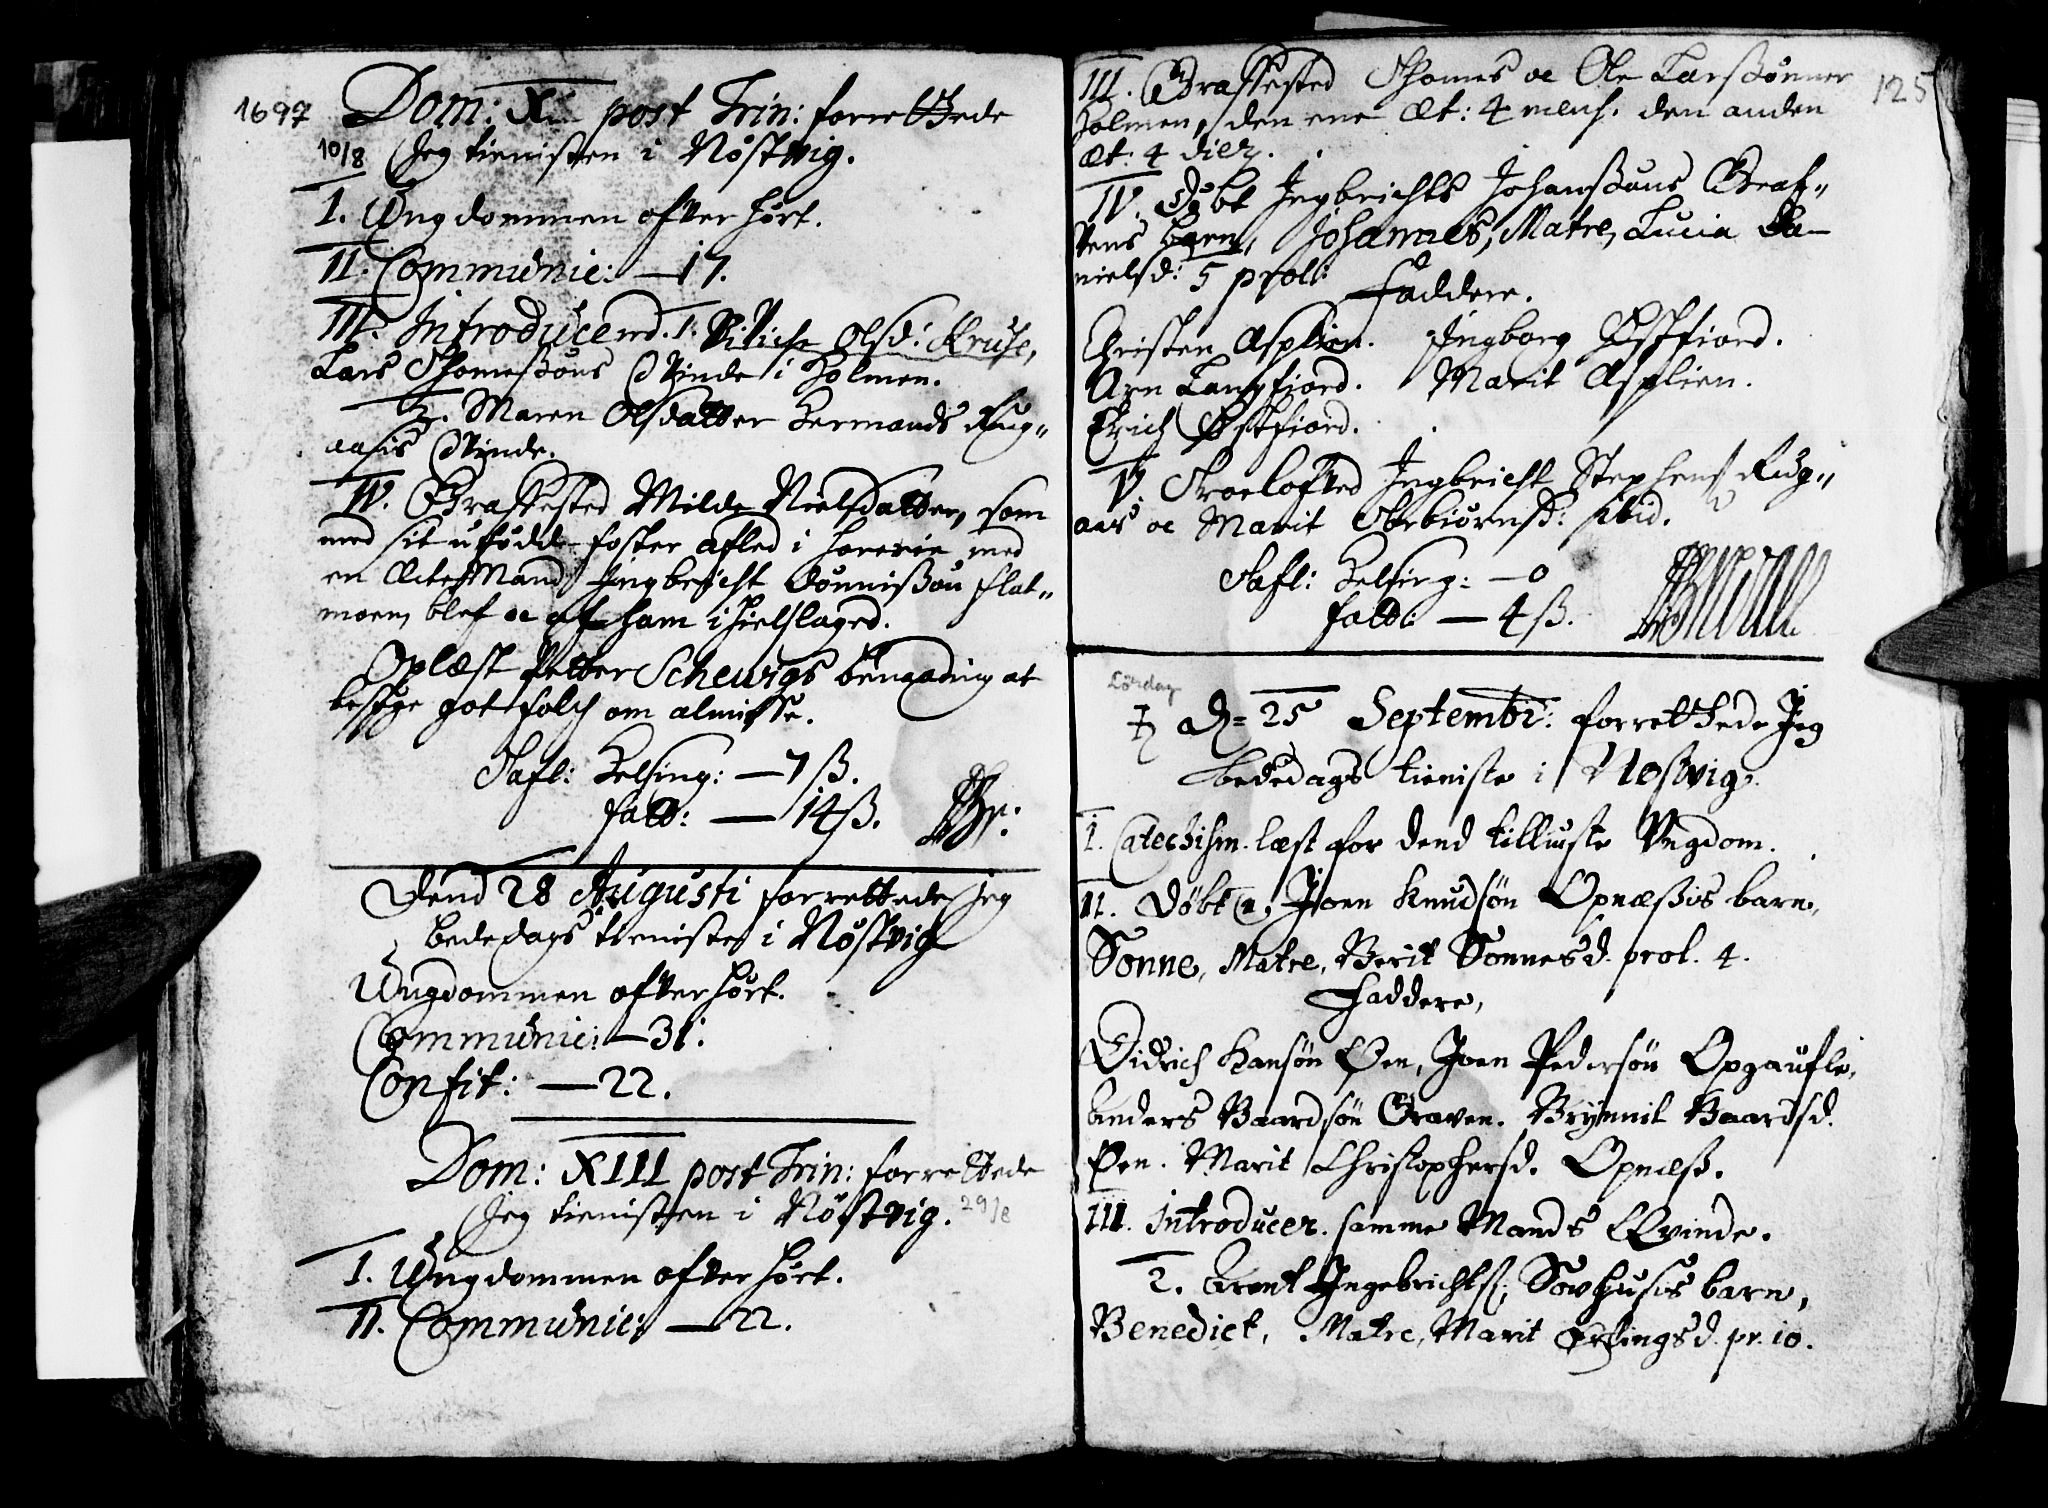 1697 Dom: X post Trin: forrettede
10/8 Jeg tienisten i Nøstvig.
I. Ungdommen ofverhørt.
II. Communic: — 17.
III. Introducend. 1. Olsd: Kruse,
Lars Thomesßøns Qvinde i Holmen.
2. Maren Olsdatter Hermands Rug„
aasis Qvinde.
IV. Graffested Milde Nielsdatter, som
med sit ufødde foster afled i horerie med
en Ectemand Jngbricht Tønnisßøn flat„
moen, blef oc af ham ihielslaged.
Oplæst Petter Schewigs benaading at
besøge got folch om almisse.
Tafl: Helsing: — 7 ß.
fatt: — 14 ß.
Dend 28 Augusti forrettede jeg
bededags tieniste i Nøstvig
Ungdommen ofverhørt.
Communic: — 31.
Confit: — 22.
Dom: XIII post Trin: forrettede
Jeg tienisten i Nøstvig. 29/8
I. Ungdommen ofverhørt.
II. Communic: — 22.
125
III. Graffested Thomes oc Ole Larsßønner
Holmen, den ene Æt: 4 mens. den anden
Æt: 4 dier.
IV. Døbt Jngbrichts Johansßøns Graf„
vens barn, Johannes, Matre, Lucia Da-
nielsd: 5 prol:
Faddere.
Christen Asplien. Jngborg Østfiord.
Arn Langfiord. Marit Asplien.
Erich Østfiord.
V. Troelofved Jngbricht Stephens Rug„
aas oc Marit Torbiørnsd: ibid.
Tafl: Helsing: — 0
fatt: — 4 ß.
Lørdag
d= 25 Septembr: forrettede Jeg
bededags tieniste i Nosvig.
I. Catechism. læst for dend tilliuste Vngdom.
II. Døbt 1. Joen Knudsøn Opnæßis barn,
Sonne, Matre, Berit Sonnesd. prol. 4.
Faddere,
Didrich Hansøn Øen, Joen Pedersøn Opgaufle,
Anders Baardsøn Graven. Brynnil Baardsd.
Øen. Marit Christophersd. Opnæß.
III. Introducer. samme Mands Qvinde.
2. Arent Ingebrichts. Sovhusis barn,
Benedict, Matre, Marit Erlingsd. pr. 10.